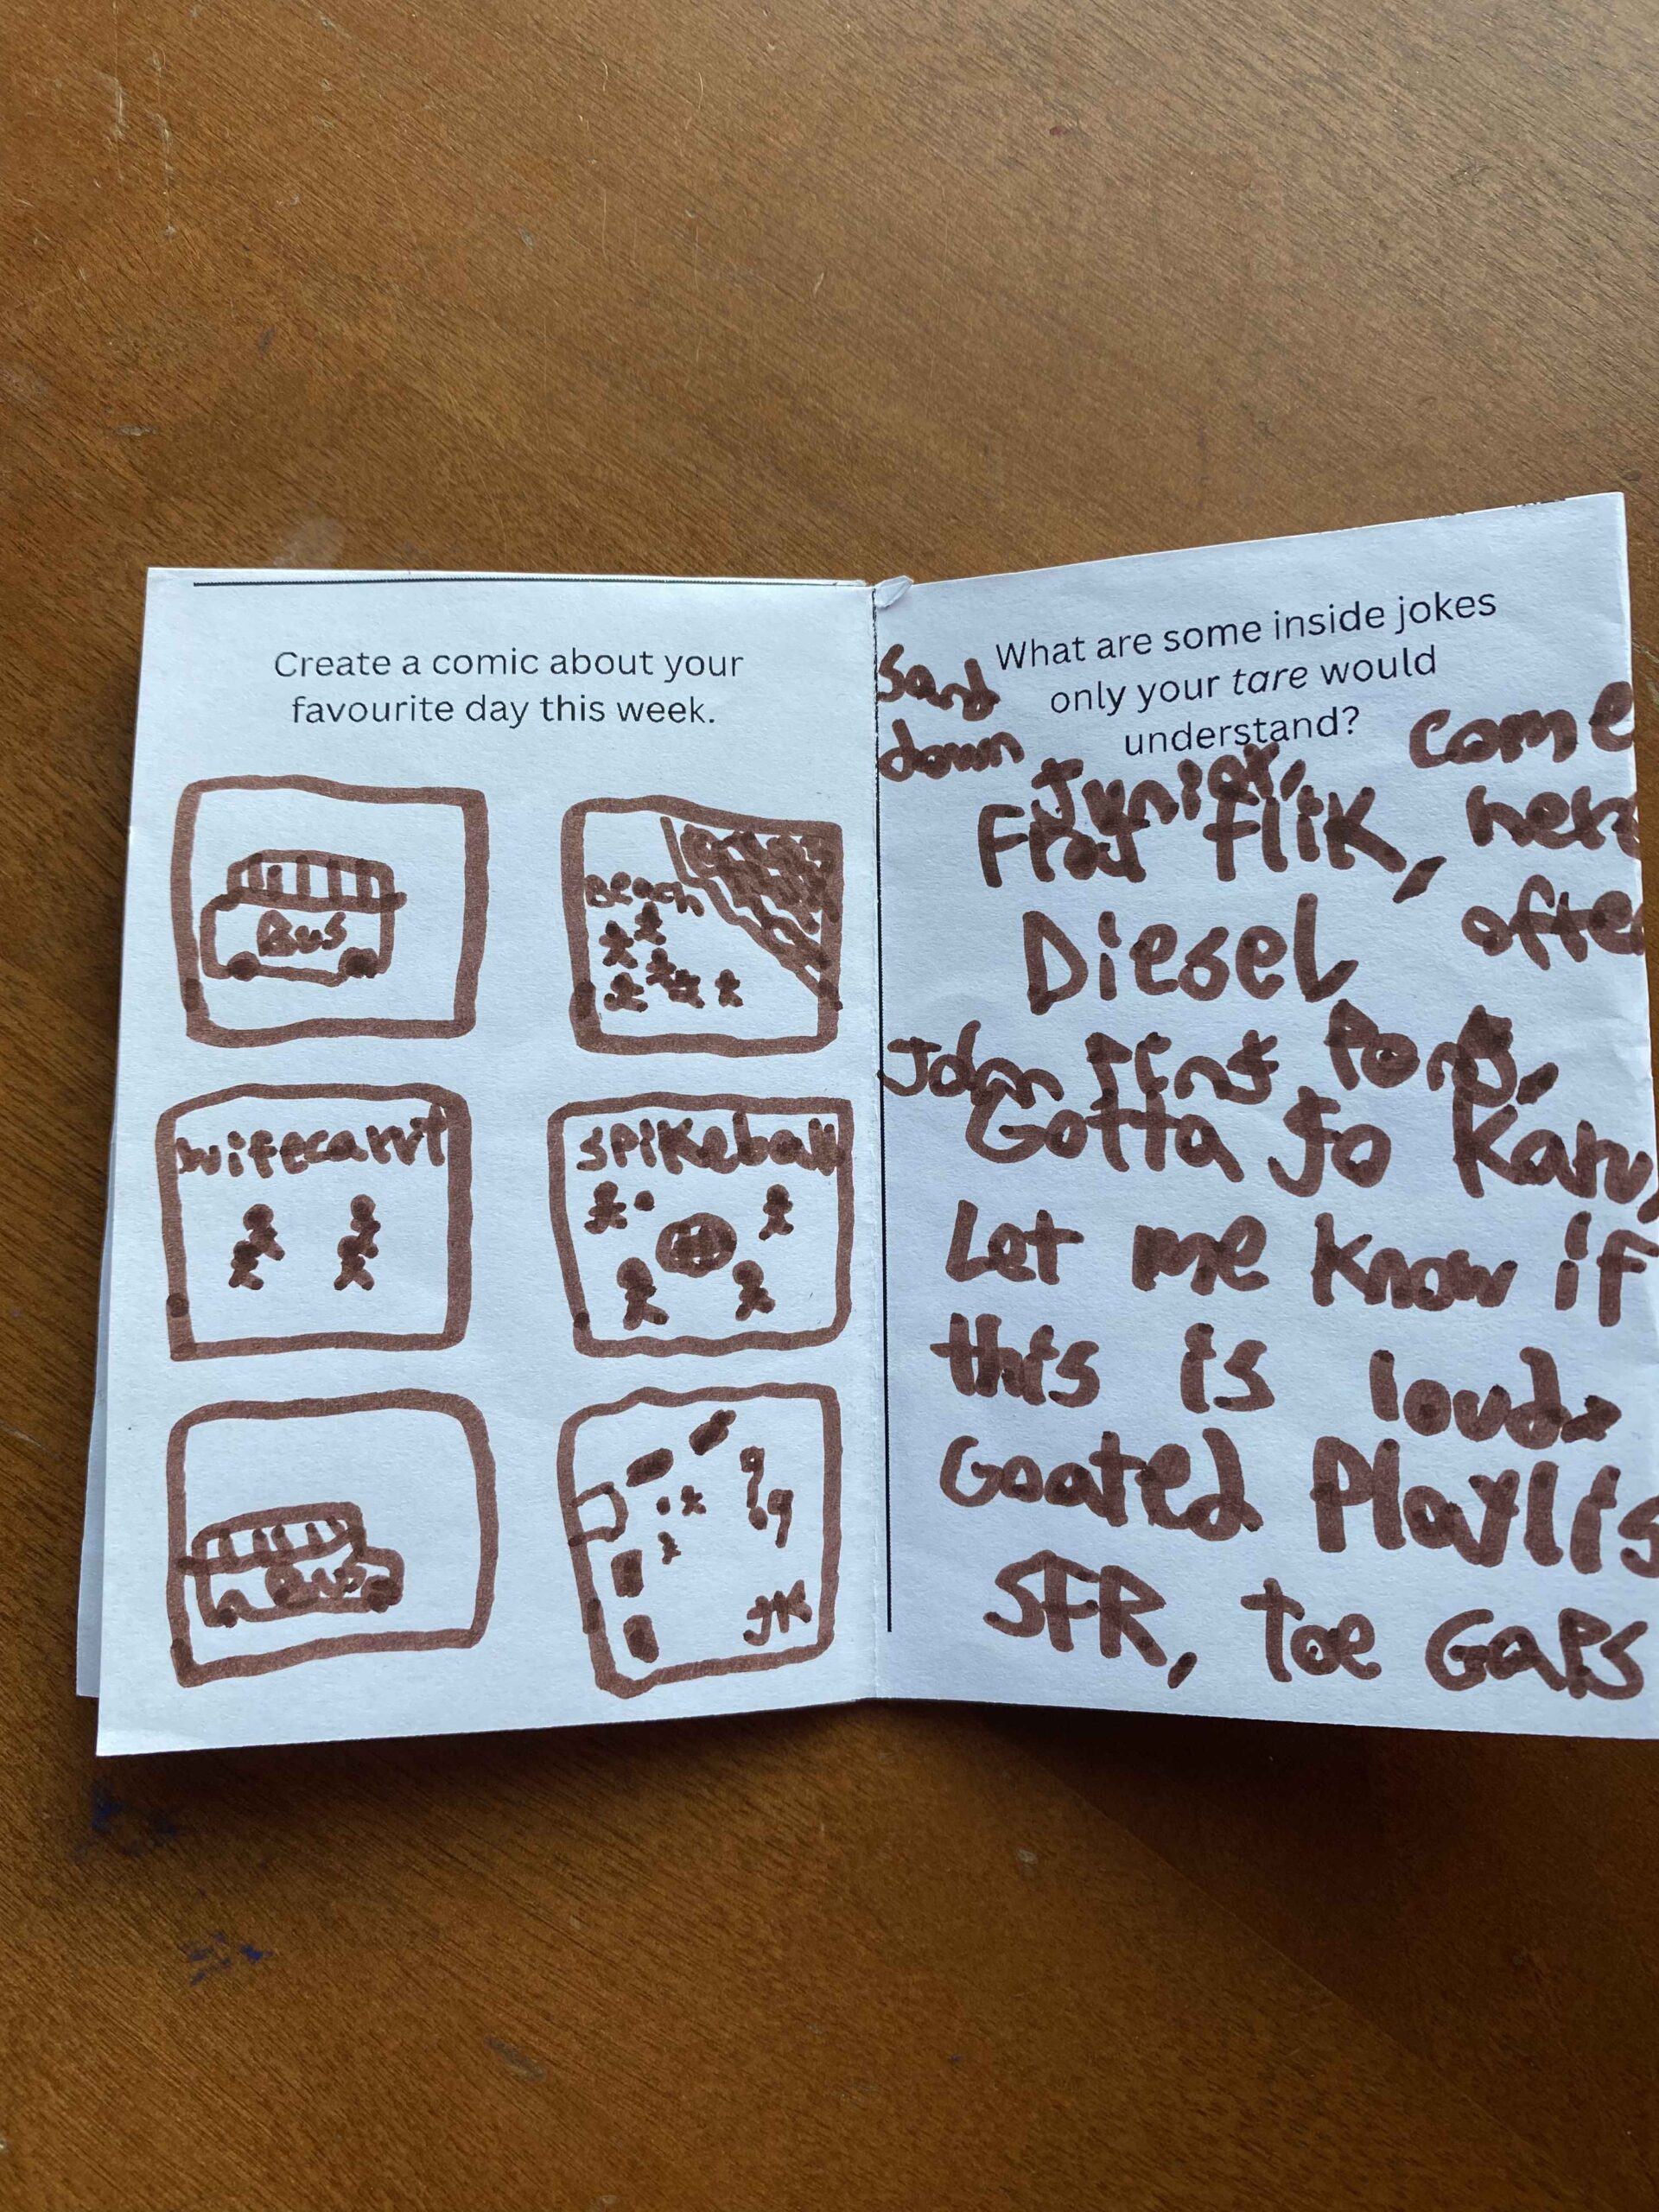 Create a comic about your
favourite day this week.
Bus
Beach
wifecarry
spikeball
Bus
JK
What are some inside jokes
only your tare would
understand?
Sand
down
come
here
after
Junior,
Flat flik,
Diesel,
John Pork
Gotta go
Let me know if
this is loud
Goated Playlis
SFR, toe GaPs